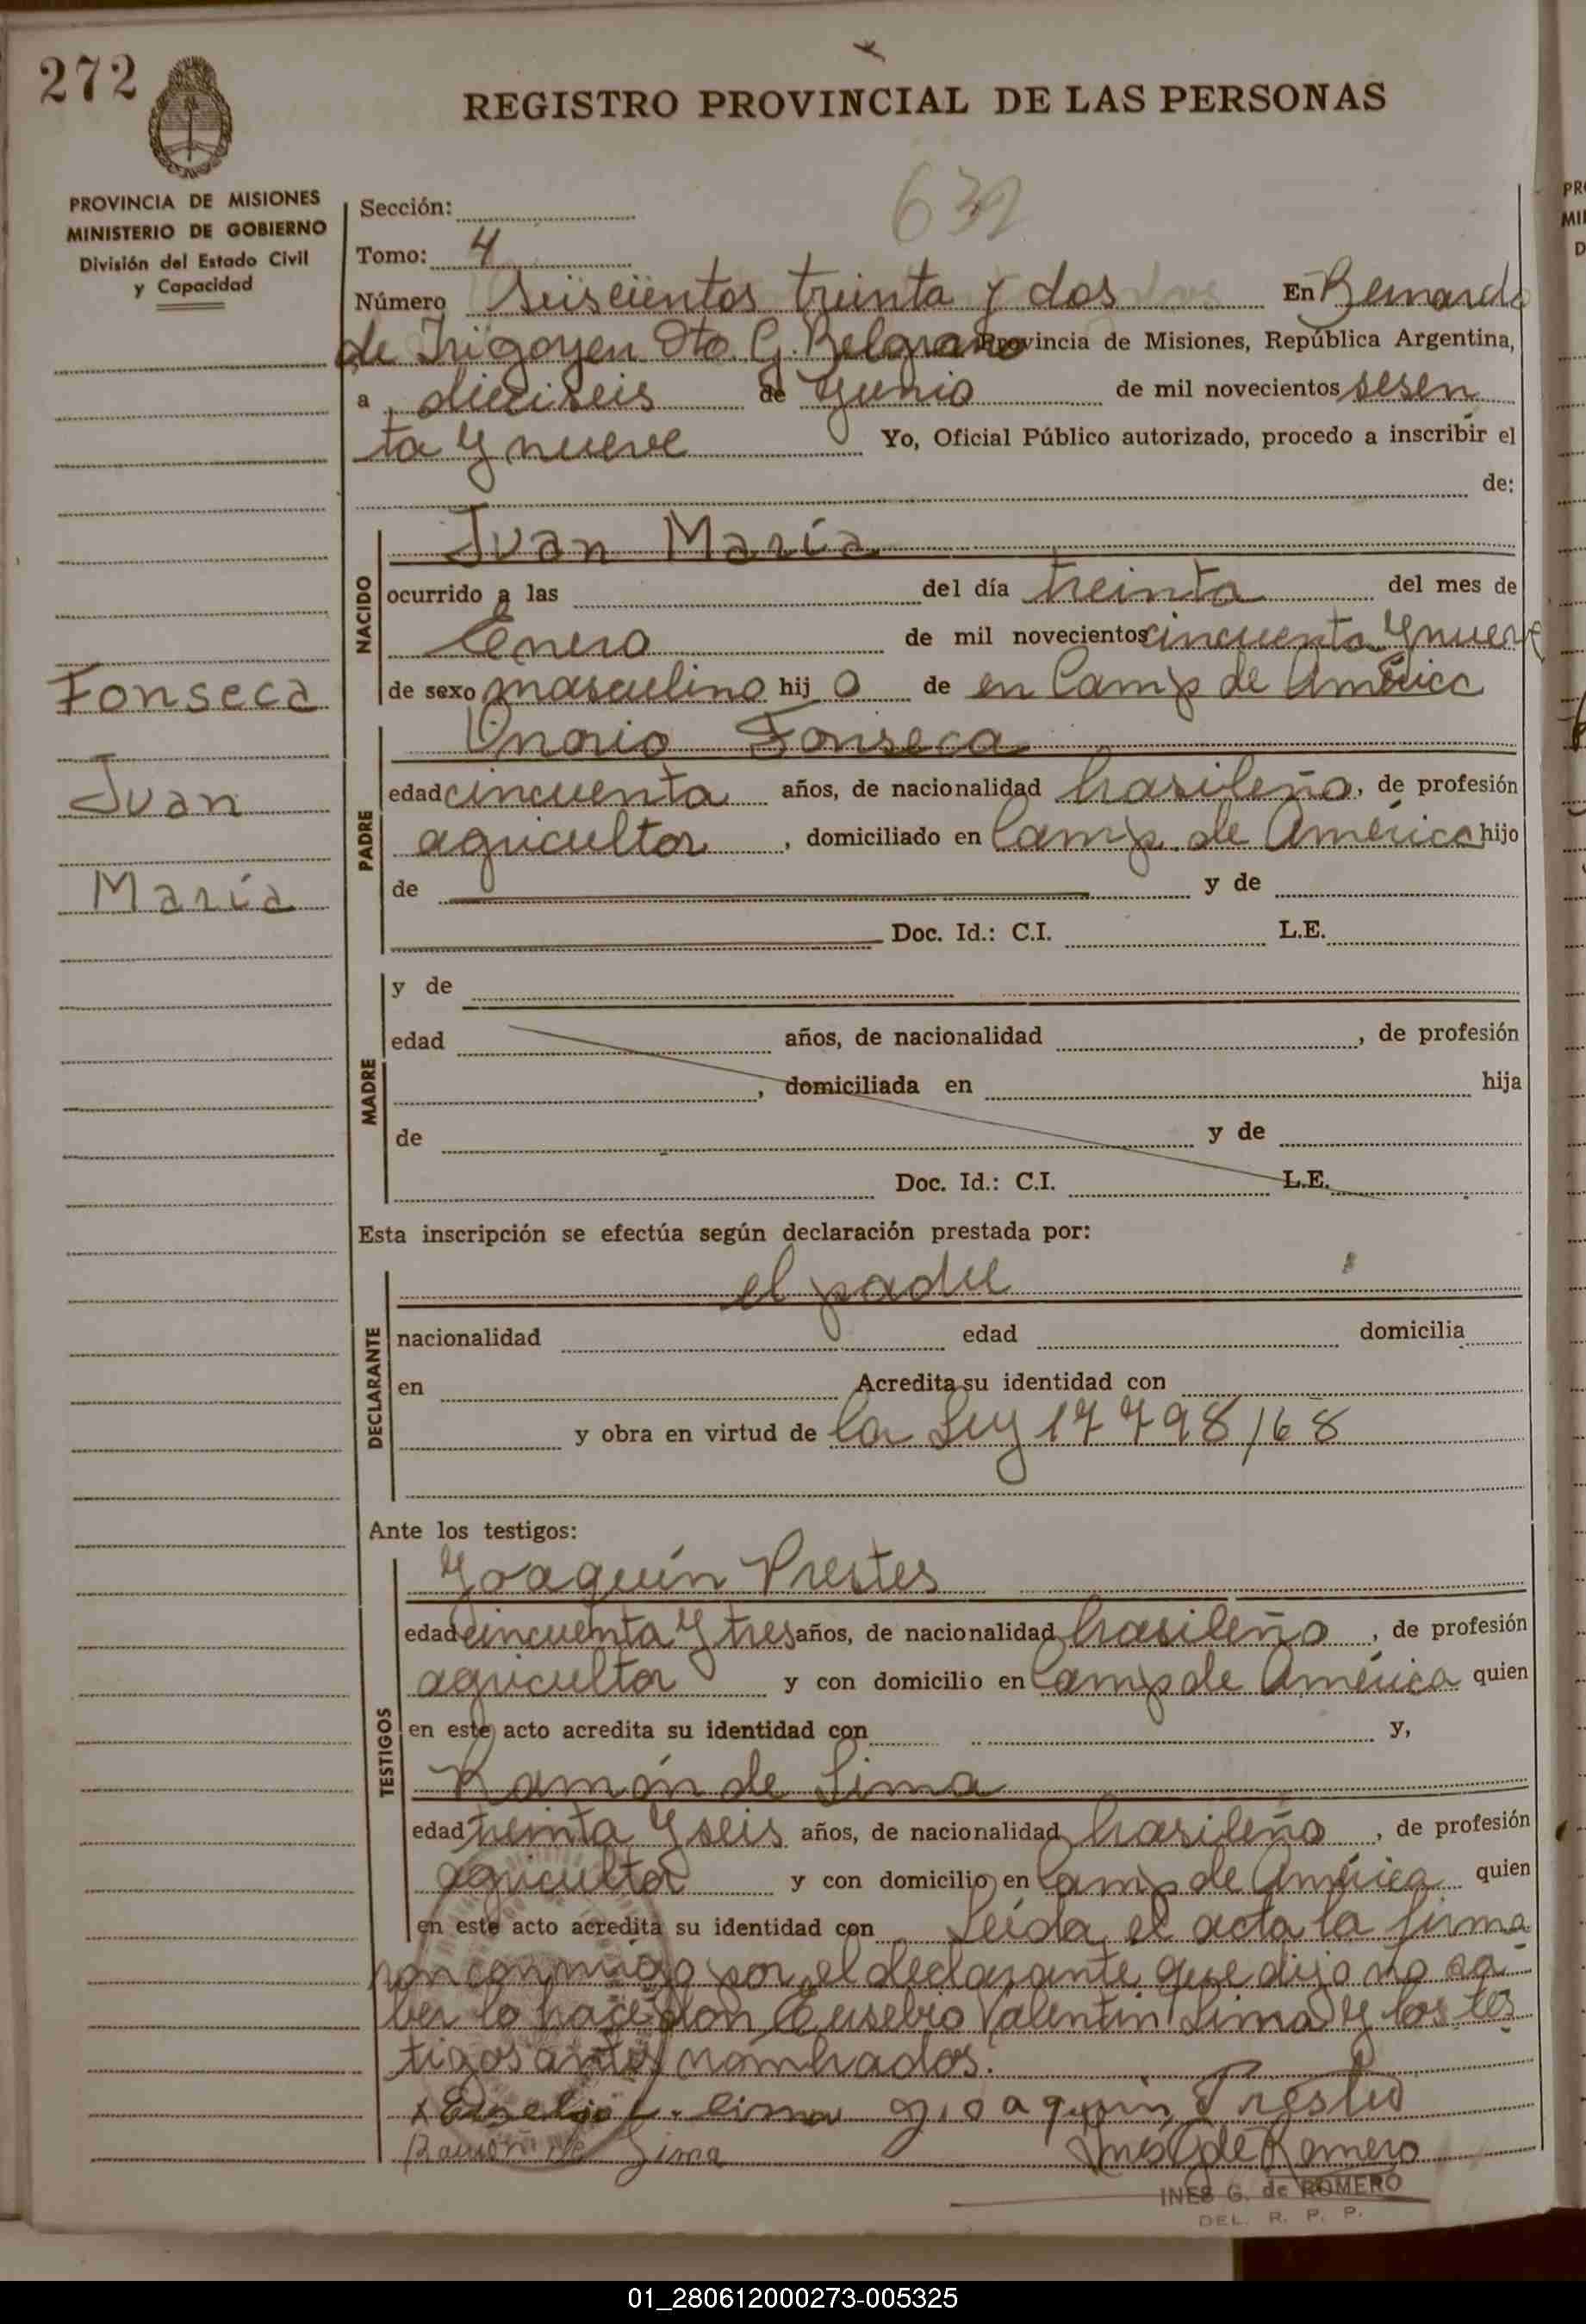 272
REGISTRO PROVINCIAL DE LAS PERSONAS
PROVINCIA DE MISIONES
MINISTERIO DE GOBIERNO
División del Estado Civil
y Capacidad
632
Sección:
Tomo: 4
Número Seiscientos treinta y dos En Bernardo
de Irigoyen Dto. G. Belgrano Provincia de Misiones, República Argentina,
a dieciseis de Junio de mil novecientos sesen
ta y nueve Yo, Oficial Público autorizado, procedo a inscribir el
de:
Fonseca
Juan
María
NACIDO
Juan María
ocurrido a las del día treinta del mes de
Enero de mil novecientos cincuenta y nueve
de sexo masculino hij o de en Camp de América
PADRE
Onorio Fonseca
edad cincuenta años, de nacionalidad brasileño, de profesión
agricultor, domiciliado en Camp. de América hijo
de y de
Doc. Id.: C.I. L.E.
MADRE
y de
edad años, de nacionalidad , de profesión
, domiciliada en hija
de y de
Doc. Id.: C.I. L.E.
Esta inscripción se efectúa según declaración prestada por:
DECLARANTE
el padre
nacionalidad edad domicilia
en Acredita su identidad con
y obra en virtud de la Ley 17798/68
Ante los testigos:
TESTIGOS
Joaquín Prestes
edad cincuenta y tres años, de nacionalidad brasileño, de profesión
agricultor y con domicilio en Camp de América quien
en este acto acredita su identidad con y,
Ramón de Lima
edad treinta y seis años, de nacionalidad brasileño, de profesión
agricultor y con domicilio en Camp de América quien
en este acto acredita su identidad con Leída el acta la firma
ron conmigo por el declarante que dijo no sa
ber lo hace don Eusebio Valentin Lima y los tes
tigos antes nombrados.
x Eusebio V. Lima Joaquin Prestes
Ramon de Lima Ines G de Romero
INES G. de ROMERO
DEL. R. P. P.
01_280612000273-005325